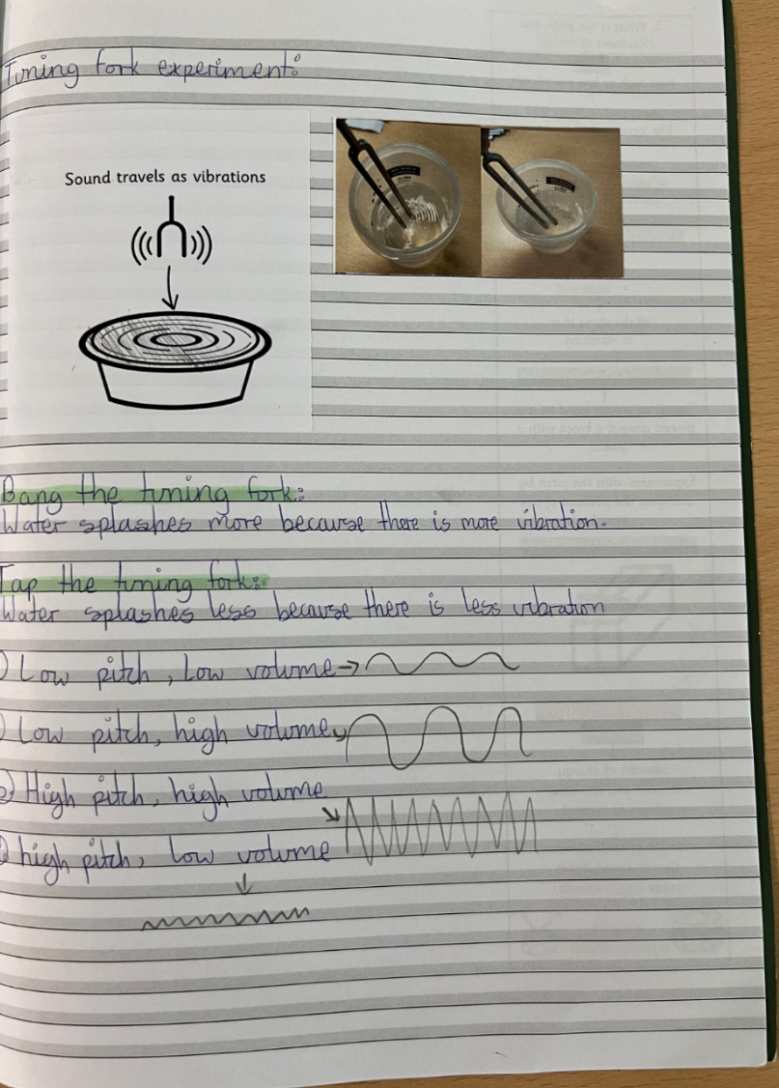 Tuning fork experiment:
Sound travels as vibrations
Bang the tuning fork:
Water splashes more because there is more vibration.
Tap the tuning fork:
Water splashes less because there is less vibration
) Low pitch, Low volume →
) Low pitch, high volume
) High pitch, high volume
) high pitch, low volume